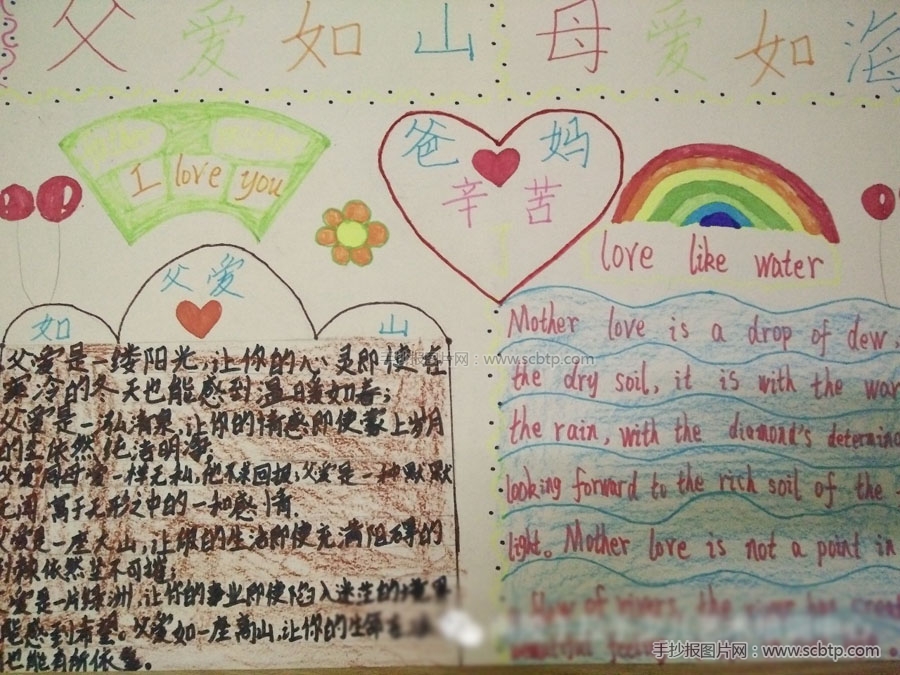 父爱如山 母爱如海
I love you
爸 妈
辛 苦
love like water
父爱
如 山
父爱是一缕阳光,让你的心灵即使在
寒冷的冬天也能感到温暖如春;
父爱是一泓清泉,让你的情感即使蒙上岁月
的尘依然纯洁明净。
父爱同母爱一样无私,他不求回报;父爱是一种默默
无闻,寓于无形之中的一种感情.
父爱是一座大山,让你的生活即使充满阻碍的
依然坚不可摧.
爱是一片绿洲,让你的事业即使陷入迷茫的
能感到希望。父爱如一座高山,让你的生
也能有所依靠。
Mother love is a drop of dew,
the dry soil, it is with the
the rain, with the diamond's
looking forward to the rich soil of the
light。 Mother love is not a point in
of rivers, the river has
手抄报图片网:www.scbtp.com
手抄报图片网:www.scbtp.com